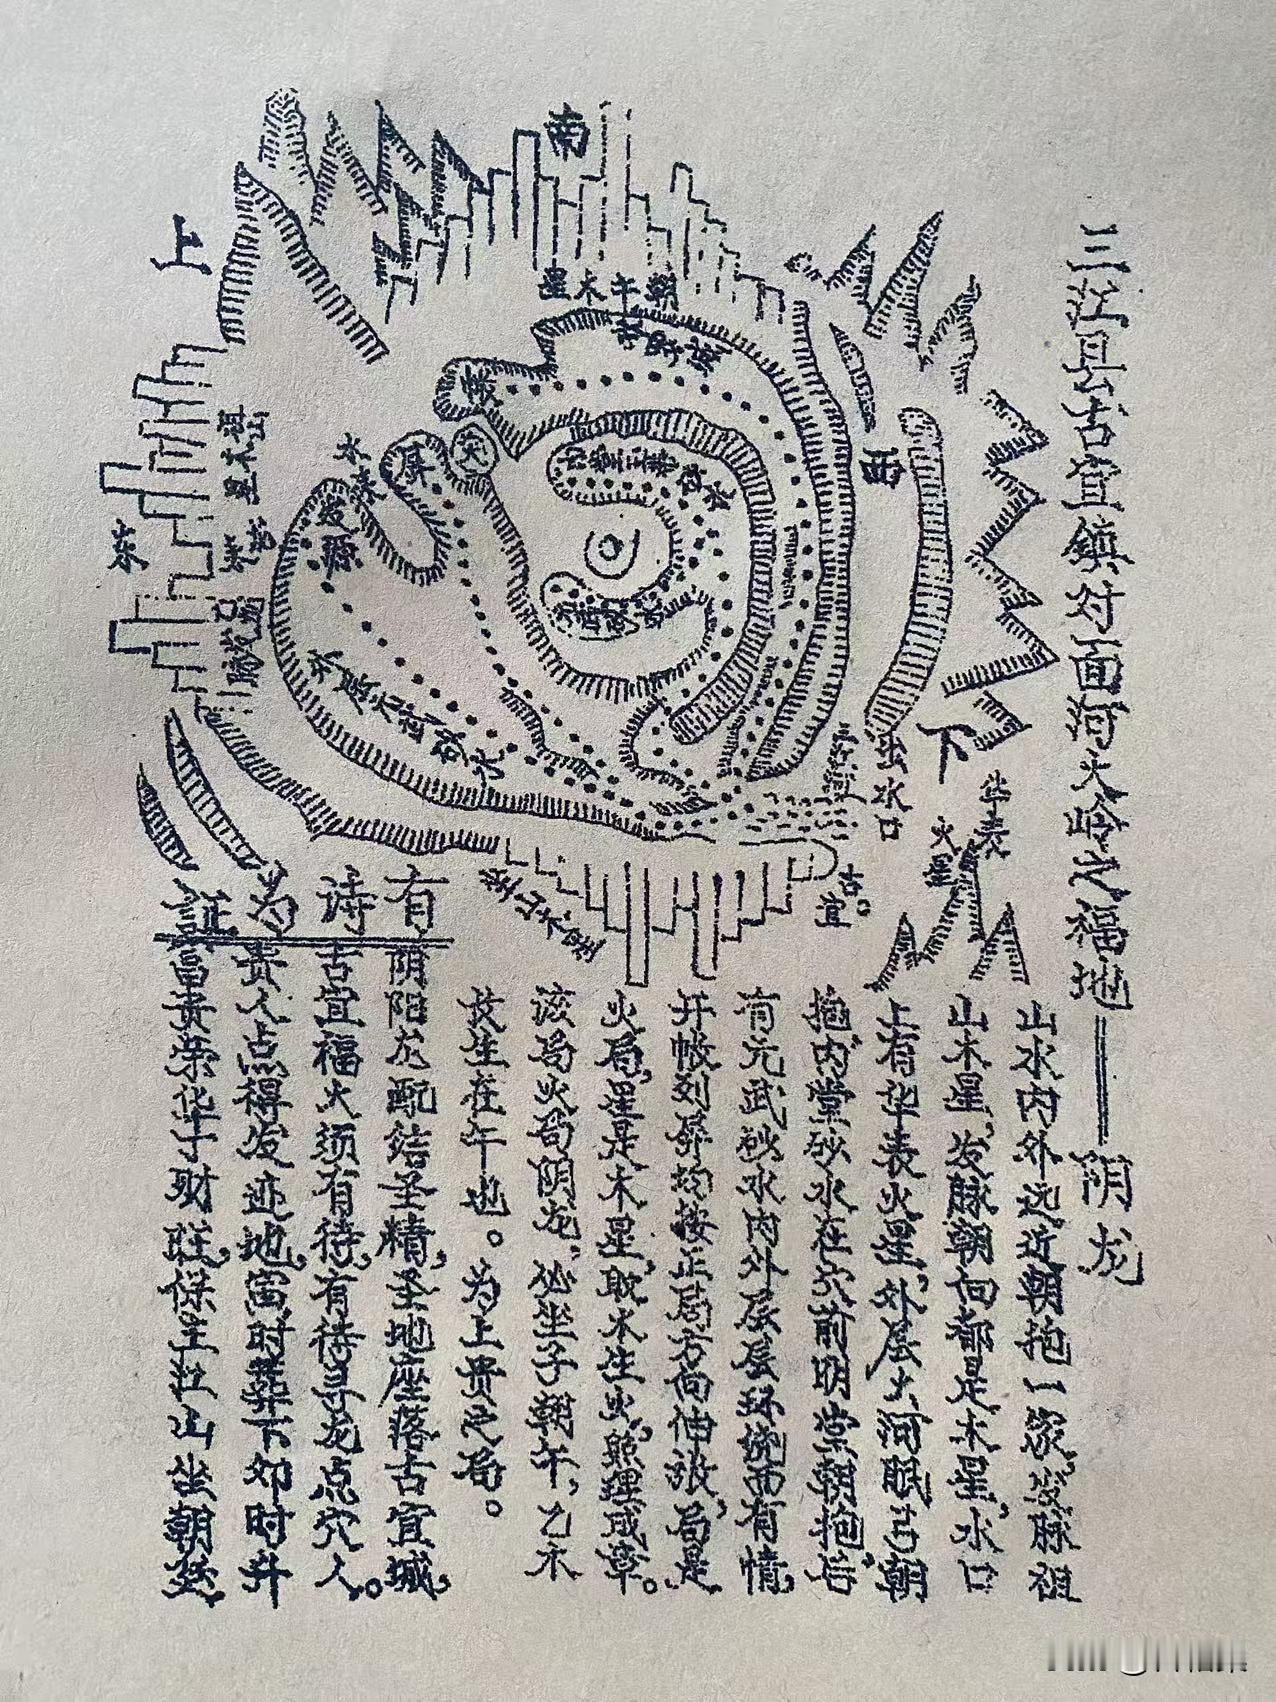 三江县古宜镇对面河大岭之福地——阴龙
山水内外远近朝抱一家，发脉祖
山木星，发脉朝向都是木星，水口
上有华表火星，外层大河眠弓朝
抱，内堂砂水在穴前明堂朝抱，后
有元武砂水内外层层环绕而有情，
开帐列屏均接正局方向伸张，局是
火局，星是木星，取木生火，照理成章。
该局火局阴龙，必坐子朝午，乙木
长生在午也。为上贵之局。
有诗为证
阴阳龙配结圣精，圣地座落古宜城，
古宜福火须有待，有待寻龙点穴人。
贵人点得发迹地，酉时葬下卯时升
富贵荣华子财旺，保
山
朝
南
上
东
西
下
朝午木星
祖山木星
来龙
发脉
帐
屏
穴
出水口
华表
火星
古宜。
坐山木星